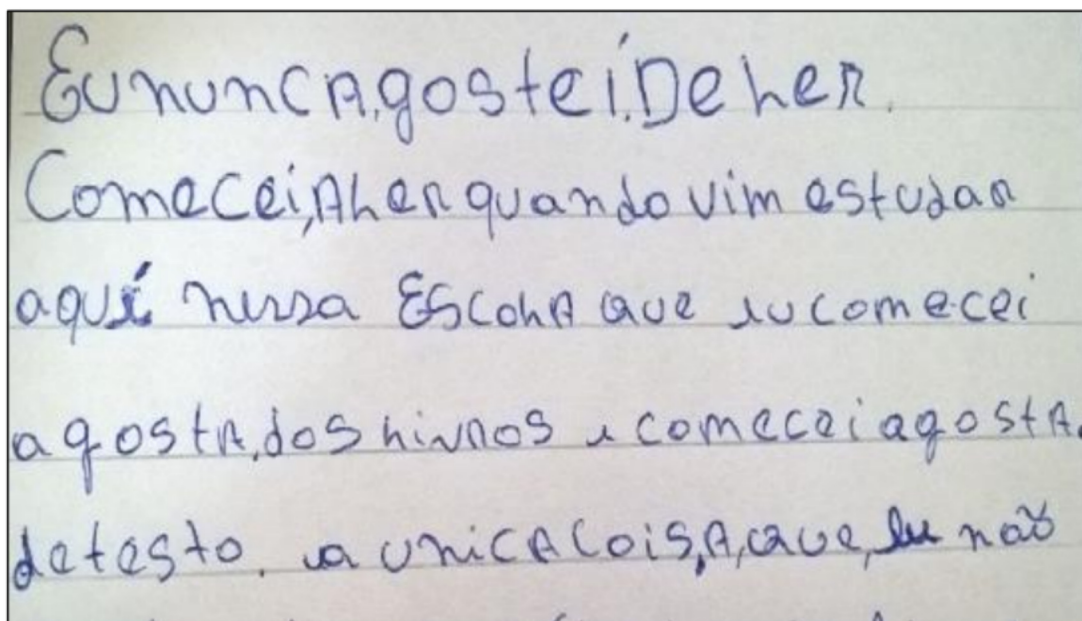 Eu nunca,gostei.De ler.
Comecei,A ler quando vim estudar
aquí nessa EScolA que eu comecei
a gostA.dos livros e comecei agostA.
detesto. a unicA cois,A,que,eu não